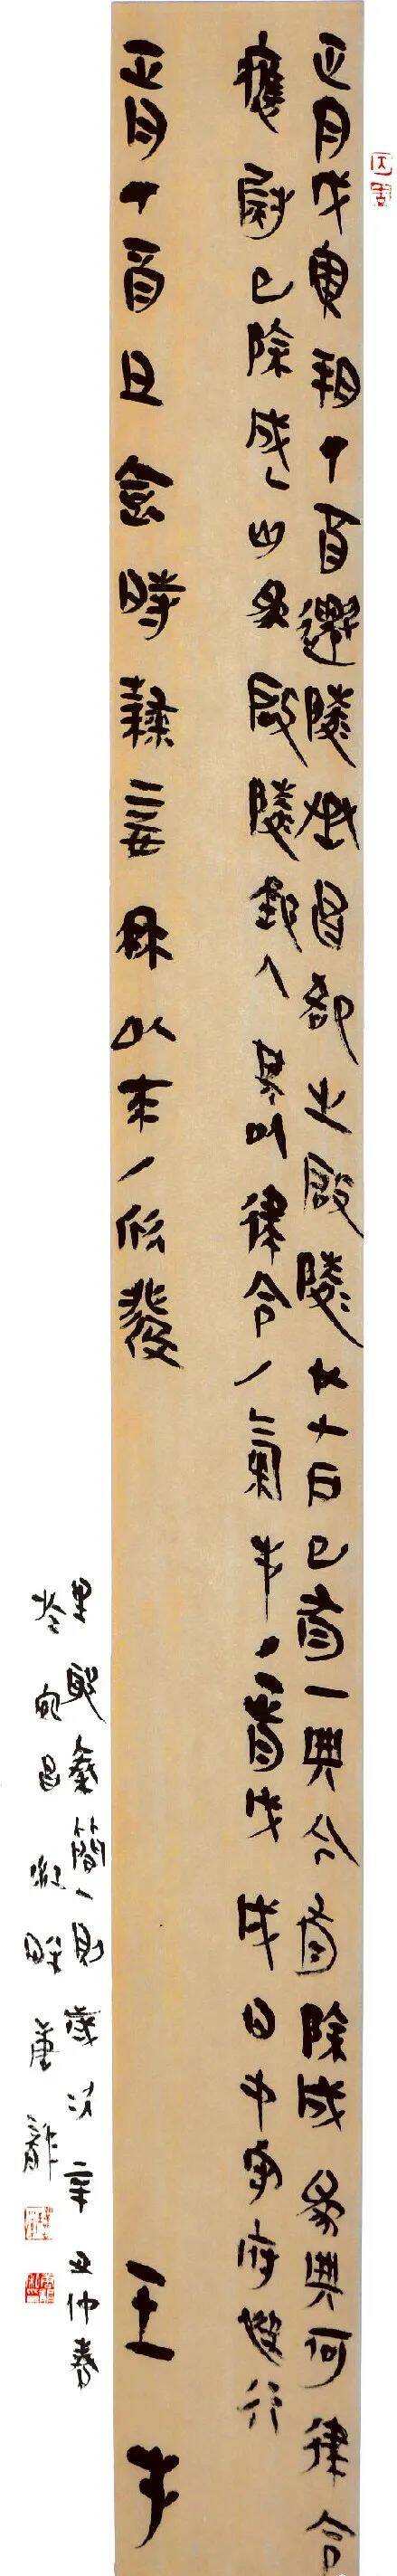 正月戊寅朔丁酉遷陵丞昌卻之啟陵廿七户已有一典今有除成為典何律令
應尉已除成匄為啟陵郵人其以律令/氣手/正月戊戌日中守府快行
正月丁酉旦食時隸妾冉以來/欣發 壬手
里耶秦簡一則歲次辛丑仲春